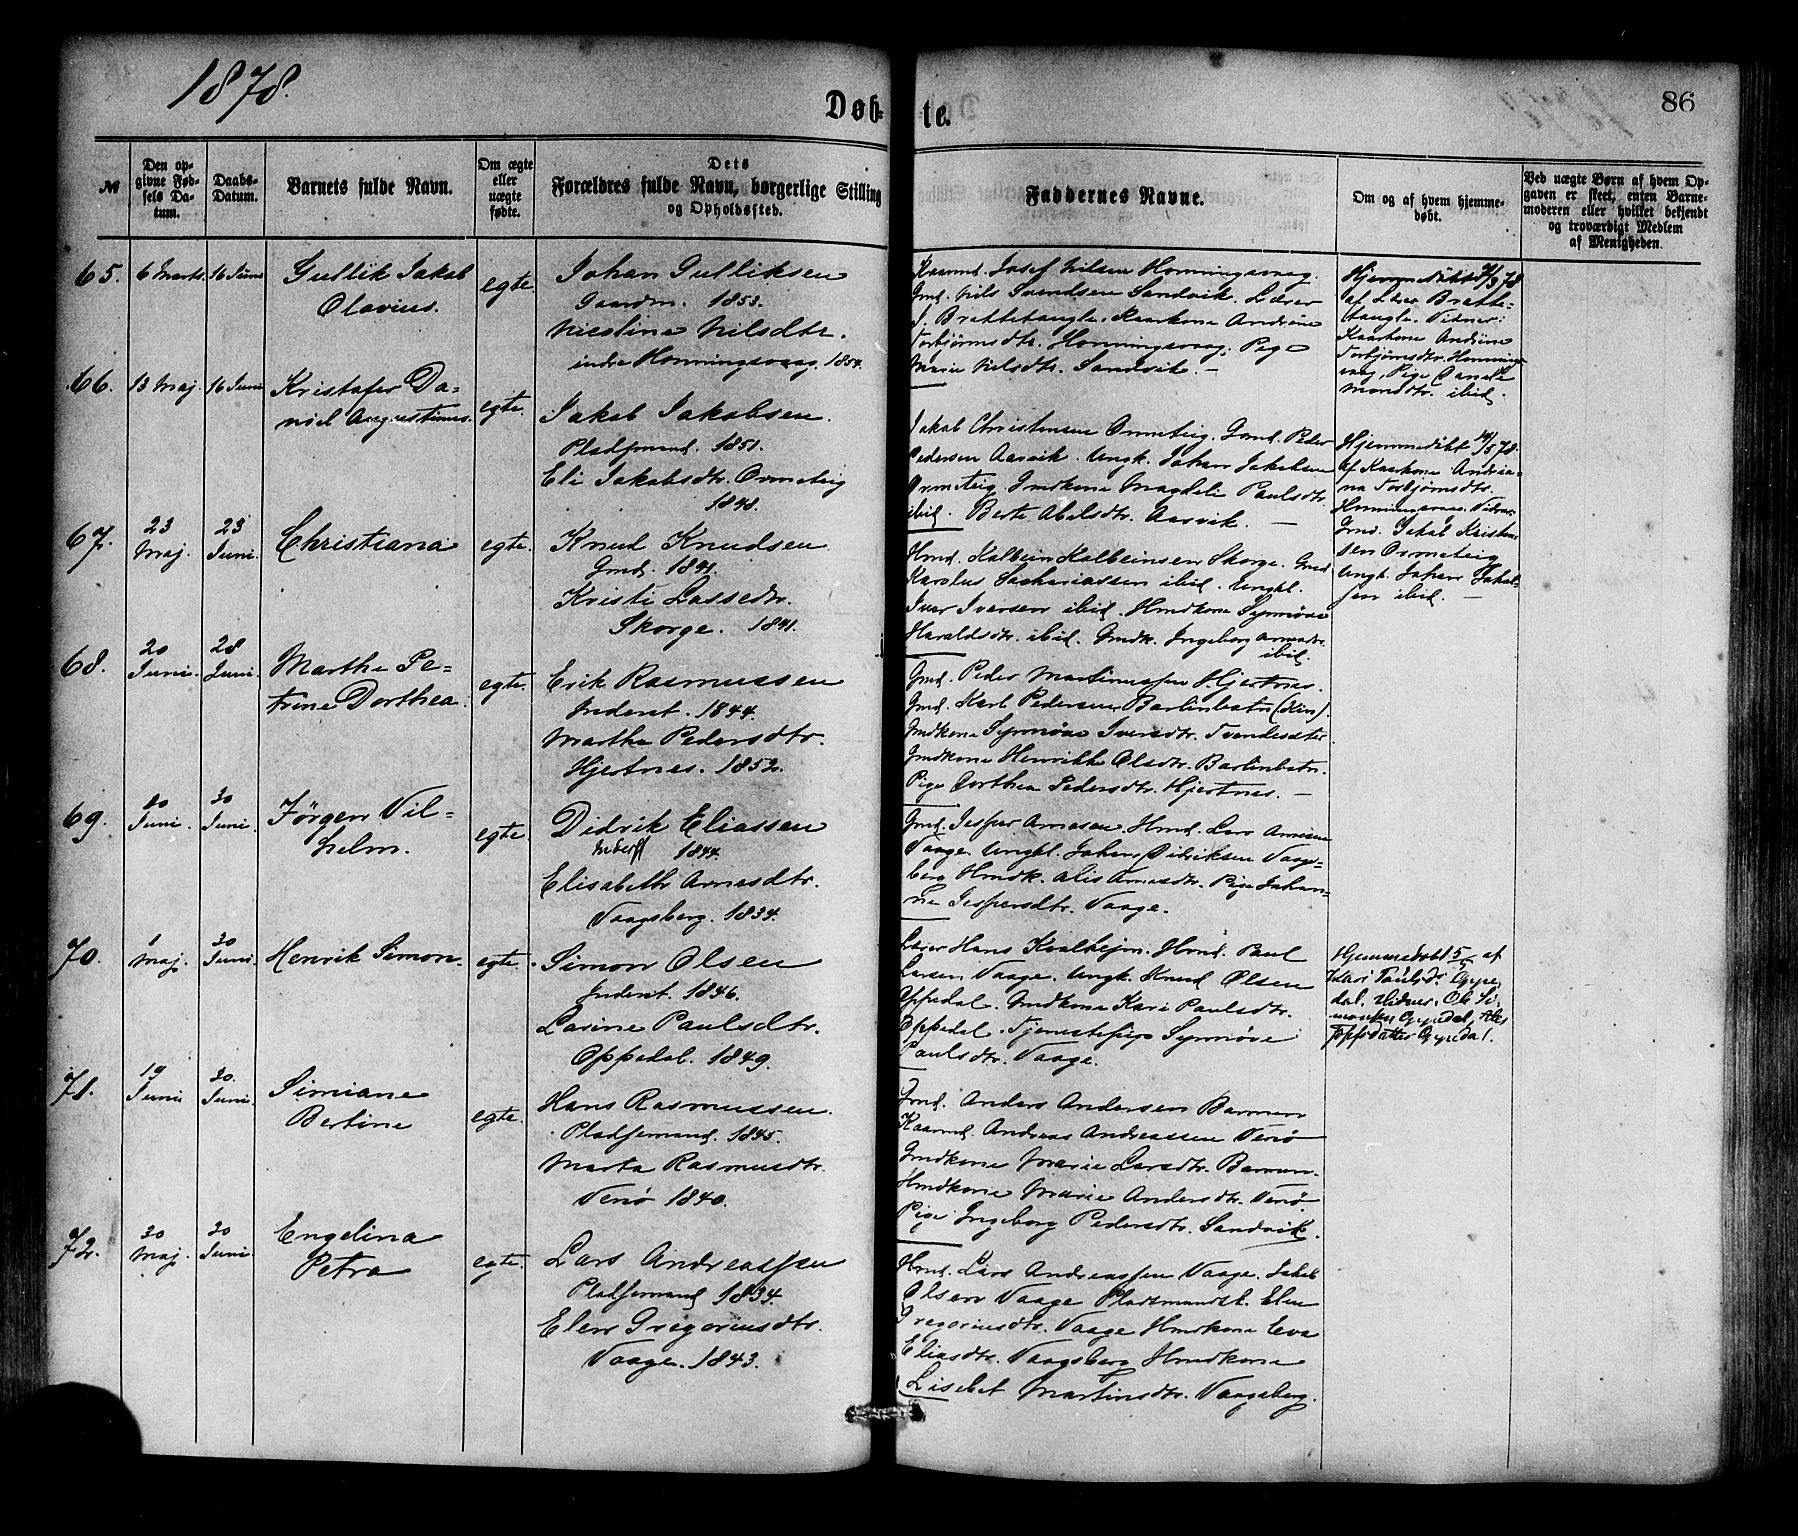 1878.
Døb-
te.
86
№
Den op-
givne Fød-
sels Da-
tum.
Daabs-
Datum.
Barnets fulde Navn.
Om ægte
eller
uægte
fødte.
Dets
Forældres fulde Navn, borgerlige Stilling
og Opholdssted.
Faddernes Navne.
Om og af hvem hjemme-
døbt.
Ved uægte Børn af hvem Op-
gaven er skeet, enten Barne-
moderen eller hvilket bekjendt
og troværdigt Medlem
af Menigheden.
65.
6 Marts
16 Juni
Gullik Jakob
Olavius.
egte.
Johan Gulliksen
Gaardm. 1853.
Nicoline Nilsdtr.
indre Honningsvaag. 1854.
Kaarmd. Josef Nilsen Honningsvaag.
Gmd. Nils Svendsen Sandvik. Lærer
J. Brattetaugle. Kaarkone Andrine
Torbjørnsdtr. Honningsvaag. Pige
Marie Nilsdtr. Sandvik. —
Hjemmedøbt /3 78
af Lærer Bratte-
taugle. Vidner:
Kaarkone Andrine
Torbjørnsdtr. Honnings-
vaag, Pige
ibid.
66.
13 Maj.
16 Juni
Kristofer Da-
niel Augustinus.
egte.
Jakob Jakobsen.
Pladsmand. 1851.
Eli Jakobsdtr. Ormeteig
1848.
Jakob Christensen Ormeteig. Gmd. Peder
Pedersen Aarvik. Ungk. Johan Jakobsen
Ormeteig. Gmdkone Magdeli Paulsdtr.
ibid. Berte Abelsdtr. Aarvik. —
Hjemmedøbt 14/5 78.
af Kaarkone Andria-
na Torbjørnsdtr.
Honningsvaag. Vidner:
Gmd. Jakob Kristen-
sen Ormeteig
Ungk. Johan Jakob-
sen ibid. —
67.
23
Maj.
23
Juni.
Christiana
egte.
Knud Knudsen
Gmd. 1841.
Kristi Lassedtr.
Skorge. 1841.
Hmd. Kolbein Kolbeinsen Skorge. Gmd.
Karolus Sachariassen ibid. Ungkl.
Iver Iversen ibid. Hmdkone Synnøve
Haraldsdtr. ibid. Gmdk. Ingeborg Arnesdtr.
ibid.
68.
20
Juni.
28
Juni.
Marthe Pe-
trine Dorthea.
egte.
Erik Rasmussen
Inderst. 1844.
Marthe Pedersdtr.
Hjertnes. 1852.
Gmd. Peder Martinussen Hjertnes.
Gmd. Karl Pedersen Barlinbotn (Kin).
Gmdkone Synnøve Iversdtr. Tvendesæter
Gmdkone Henrikke Olsdtr. Barlinbotn.
Pige Dorthea Pedersdtr. Hjertnes. —
69.
20
Juni.
30
Juni.
Jørgen Vil-
helm.
egte.
Didrik Eliassen
Inderst 1844.
Elisabeth Arnesdtr.
Vaagsberg. 1834.
Gmd. Jesper Arnesen. Hmd. Lars Arnesen
Vaage. Ungkl. Johan Didriksen Vaags-
berg Hmdk. Alis Arnesdtr. Pige Johan-
ne Jespersdtr. Vaage.
70.
1
Maj.
30
Juni.
Henrik Simon.
egte.
Simon Olsen
Inderst. 1846.
Larine Paulsdtr.
Oppedal. 1849.
Lærer Hans Kvalheim. Hmd. Paul
Larsen Vaage. Ungk. Knud Olsen
Oppedal. Gmdkone Kari Paulsdtr.
Oppedal. Tjenestepige Synnøve
Paulsdtr. Vaage.
Hjemmedøbt 5/5 af
Kari Paulsdr. Oppe
dal. Vidner. Ole Si-
monsen Oppedal,
Oppedal.
71.
19
Juni
30.
Juni.
Simiane
Bertine
egte.
Hans Rasmussen.
Pladsemand. 1845.
Marta Rasmusdtr.
Venø 1840.
Gmd. Anders Andersen Barmen
Kaarmd. Andreas Andreassen Venø
Gmdkone Marie Larsdtr. Barmen.
Hmdkone Marie Andersdtr. Venø.
Pige Ingeborg Pedersdtr. Sandvik.
72.
30
Maj.
30
Juni.
Engelina
Petra
egte.
Lars Andreassen
Pladsemand 1834.
Elen Gregoriusdtr.
Vaage. 1843.
Hmd. Lars Andreassen Vaage. Jakob
Olsen Vaage Pladsmandsk. Elen
Gregoriusdtr. Vaage Hmdkone Eva
Eliasdtr. Vaagsberg Hmdkone
Lisebet Martinsdtr. Vaagsberg.